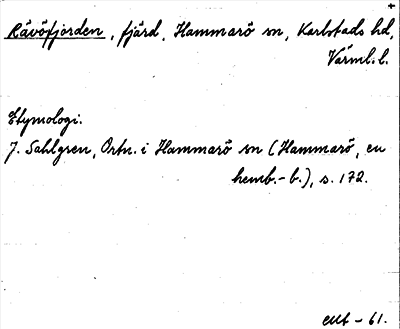 +
Rävöfjorden, fjärd, Hammarö sn, Karlstads hd,
Värml. l.
Etymologi.
J. Sahlgren, Ortn. i Hammarö sn (Hammarö, en
hemb.-b.), s. 172.
- 61.